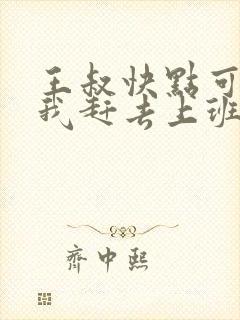 王叔快點可
我赶去上班
齊中熙